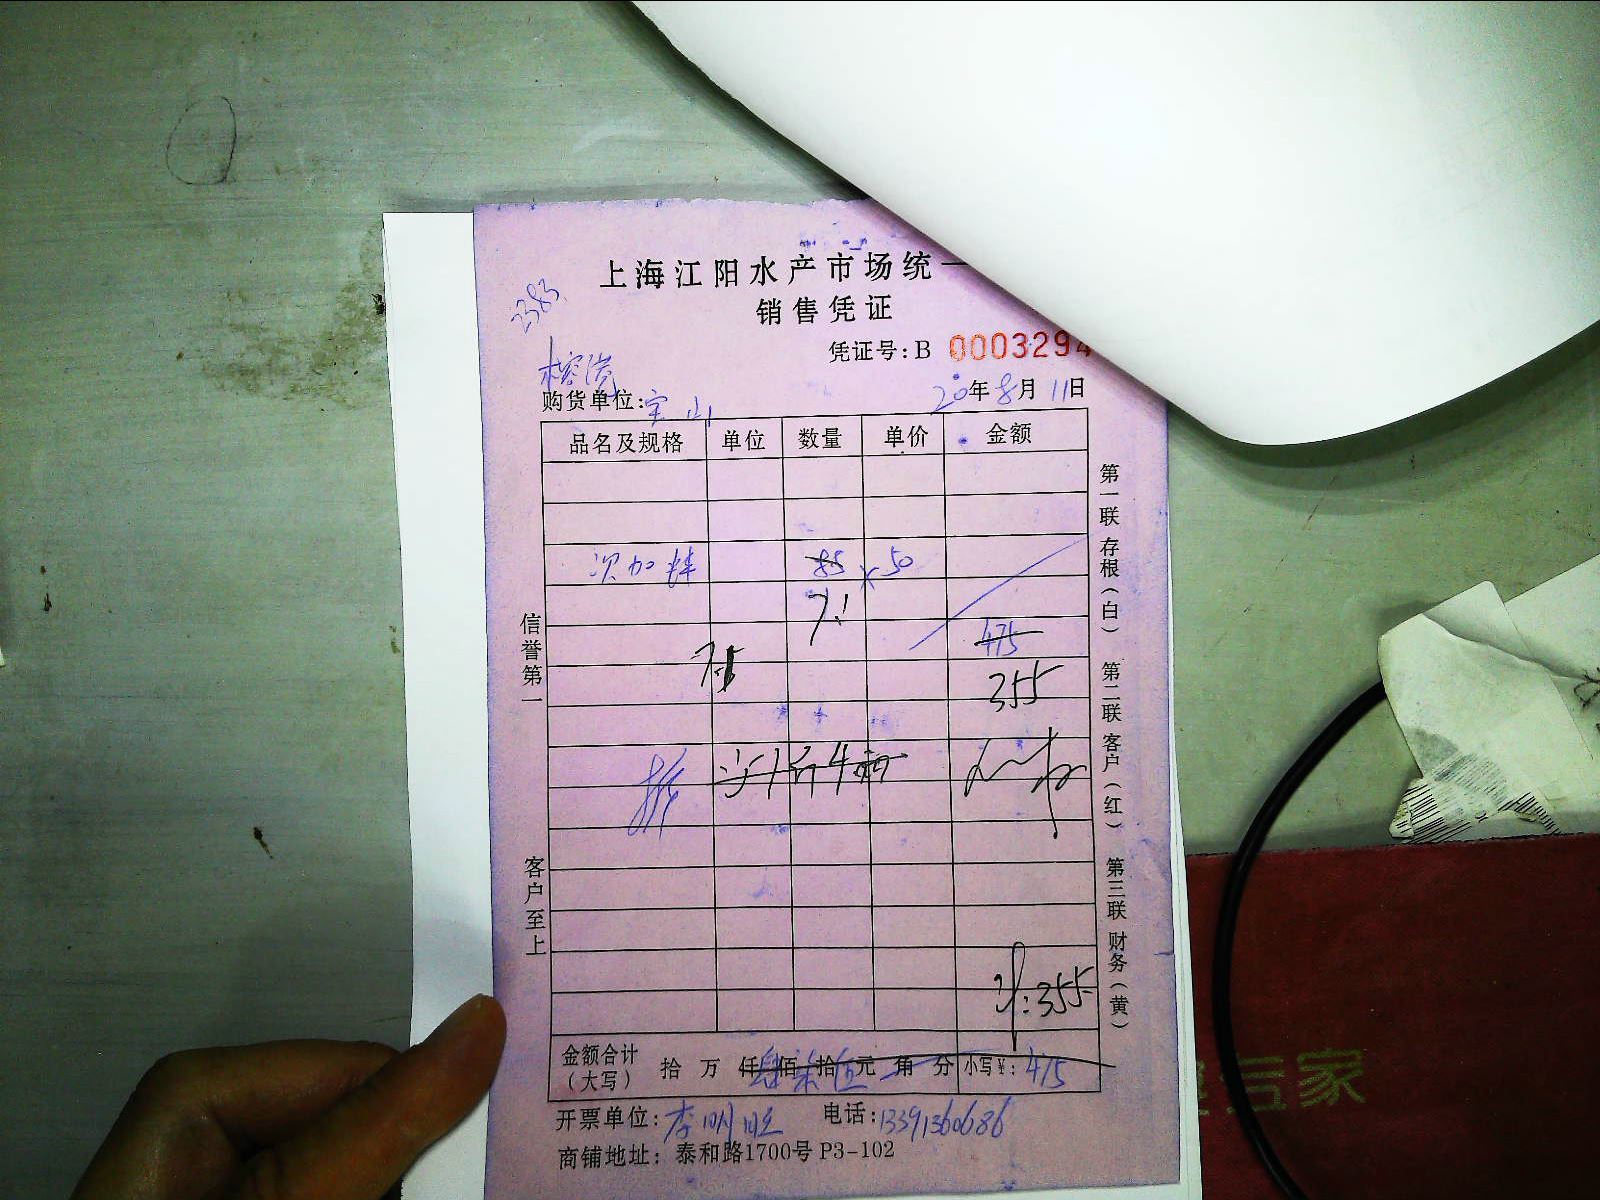 上海江阳水产市场统一
销售凭证
2383
凭证号:B 0003294
购货单位:宝山
20年8月11日
品名及规格 单位 数量 单价 金额
85 x 50
7.1
475
7.5
355
355
金额合计（大写） 拾 万 仟肆佰柒拾伍元 角 分 小写¥: 475
开票单位:李明旺 电话:13391360686
商铺地址: 泰和路1700号 P3-102
信誉第一
客户至上
第一联 存根(白) 第二联 客户(红) 第三联 财务(黄)
家